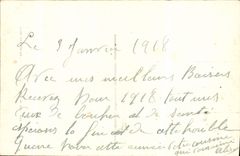 Le 3 Janvier 1918
Avec mes meilleurs Baisers
Recevez pour 1918 tout mes
Vœux de bonheur et de santé
espérons la fin de cette horrible
Guerre pour cette année